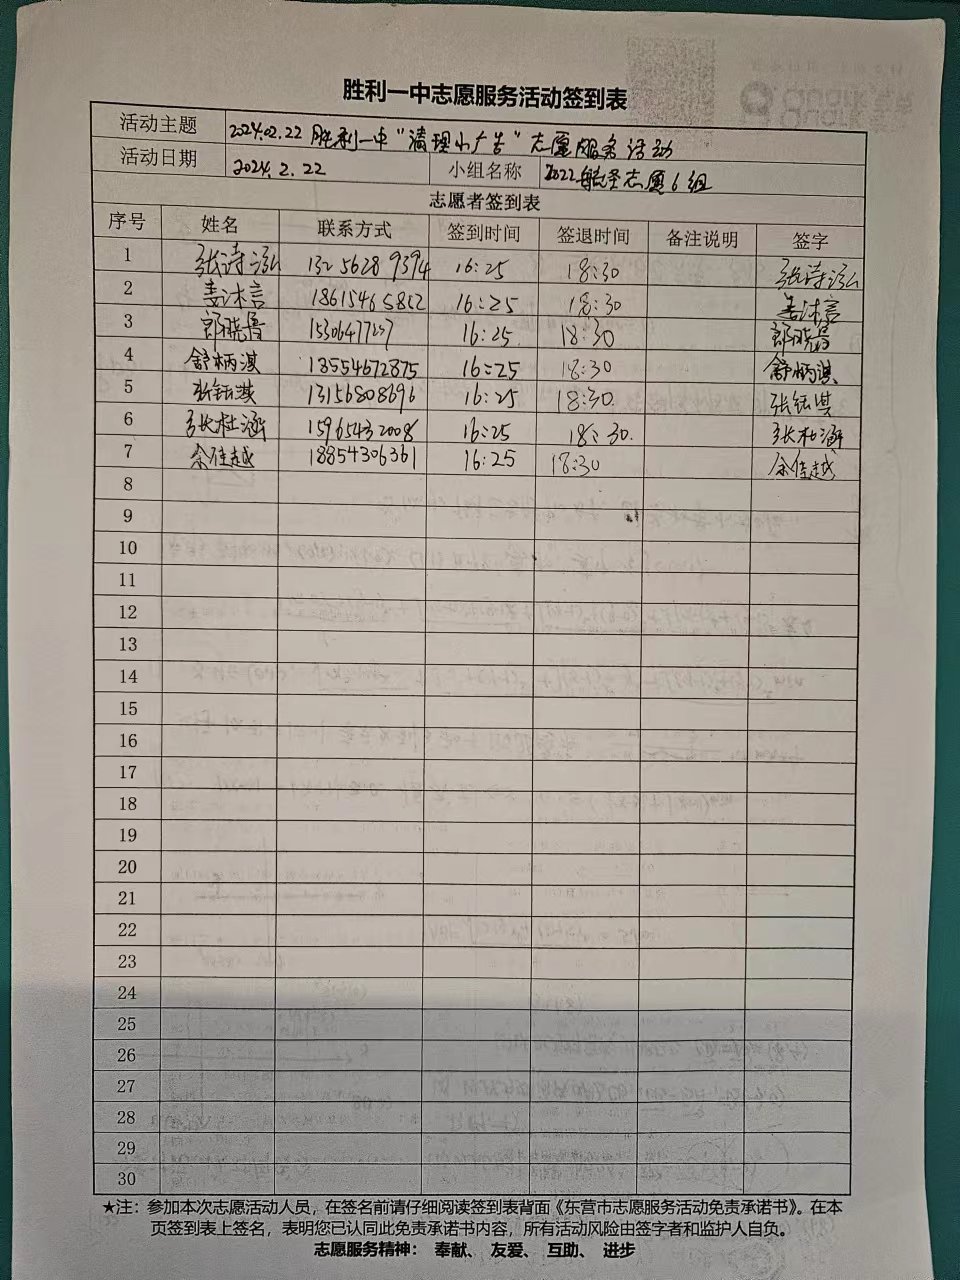 胜利一中志愿服务活动签到表
活动主题 2024.02.22 胜利一中“清理小广告”志愿服务活动
活动日期 2024.2.22 小组名称 2022航圣志愿6组
志愿者签到表
序号 姓名 联系方式 签到时间 签退时间 备注说明 签字
1 张诗泓 13256289394 16:25 18:30 张诗泓
2 姜沐言 18615465852 16:25 18:30 姜沐言
3 郎晓鲁 15306477237 16:25 18:30 郎晓鲁
4 舒炳淇 18554672875 16:25 18:30 舒炳淇
5 张钰淇 13156808696 16:25 18:30 张钰淇
6 张杜涵 15965432008 16:25 18:30. 张杜涵
7 余佳越 18854306361 16:25 18:30 余佳越
8
9
10
11
12
13
14
15
16
17
18
19
20
21
22
23
24
25
26
27
28
29
30
★注：参加本次志愿活动人员，在签名前请仔细阅读签到表背面《东营市志愿服务活动免责承诺书》。在本
页签到表上签名，表明您已认同此免责承诺书内容，所有活动风险由签字者和监护人自负。
志愿服务精神： 奉献、 友爱、 互助、 进步